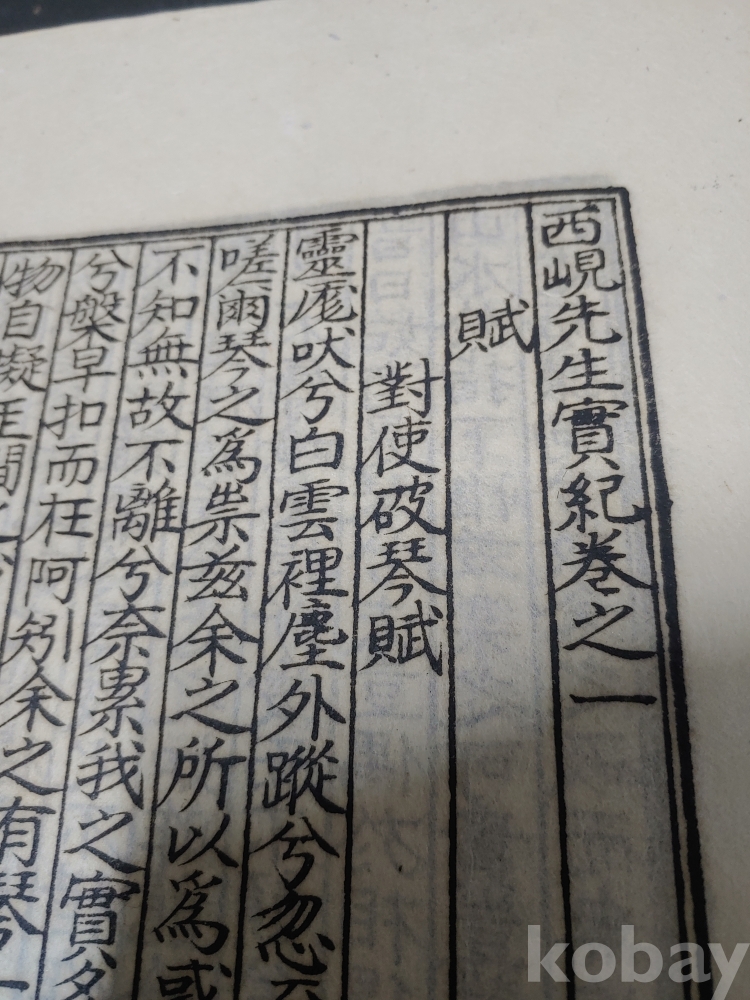 西峴先生實紀卷之一
賦
對使破琴賦
靈尨吠兮白雲裡塵外蹤兮忽
嗟爾琴之爲祟玆余之所以爲或
不知無故不離兮奈累我之實
兮槃早扣而在阿矧余之有琴
物自凝
kobay